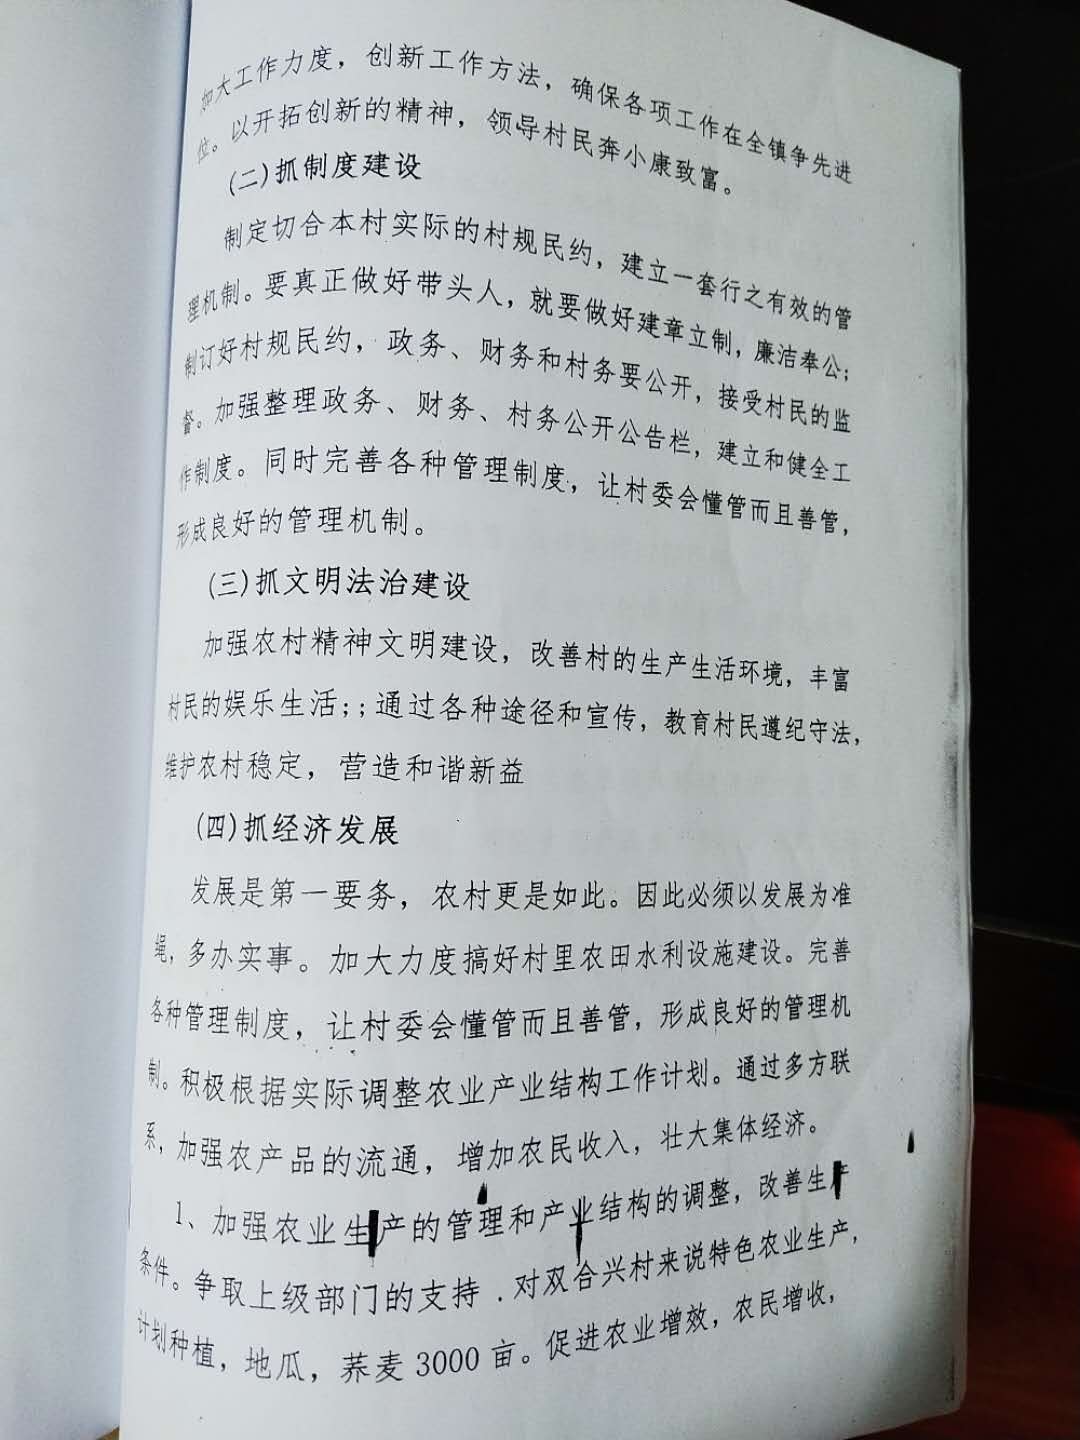 加大工作力度，创新工作方法，确保各项工作在全镇争先进
位。以开拓创新的精神，领导村民奔小康致富。
(二)抓制度建设
制定切合本村实际的村规民约，建立一套行之有效的管
理机制。要真正做好带头人，就要做好建章立制，廉洁奉公；
制订好村规民约，政务、财务和村务要公开，接受村民的监
督。加强整理政务、财务、村务公开公告栏，建立和健全工
作制度。同时完善各种管理制度，让村委会懂管而且善管，
形成良好的管理机制。
(三)抓文明法治建设
加强农村精神文明建设，改善村的生产生活环境，丰富
村民的娱乐生活；；通过各种途径和宣传，教育村民遵纪守法，
维护农村稳定，营造和谐新益
(四)抓经济发展
发展是第一要务，农村更是如此。因此必须以发展为准
绳，多办实事。加大力度搞好村里农田水利设施建设。完善
各种管理制度，让村委会懂管而且善管，形成良好的管理机
制。积极根据实际调整农业产业结构工作计划。通过多方联
系，加强农产品的流通，增加农民收入，壮大集体经济。
1、加强农业生产的管理和产业结构的调整，改善生产
条件。争取上级部门的支持．对双合兴村来说特色农业生产，
计划种植，地瓜，荞麦3000亩。促进农业增效，农民增收，